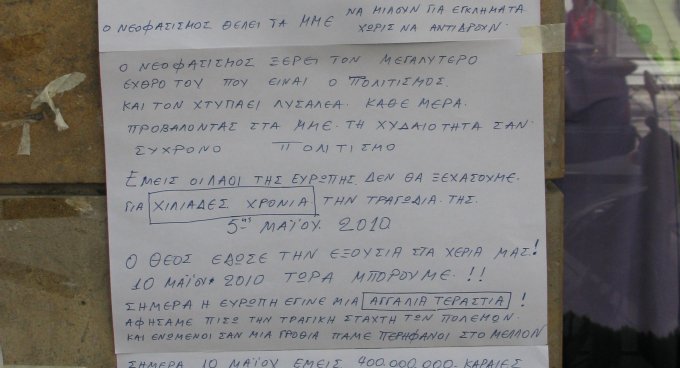 ΝΑ ΜΙΛΟΥΝ ΓΙΑ ΕΓΚΛΗΜΑΤΑ
Ο ΝΕΟΦΑΣΙΣΜΟΣ ΘΕΛΕΙ ΤΑ ΜΜΕ ΧΩΡΙΣ ΝΑ ΑΝΤΙΔΡΟΥΝ.
Ο ΝΕΟΦΑΣΙΣΜΟΣ ΞΕΡΕΙ ΤΟΝ ΜΕΓΑΛΥΤΕΡΟ
ΕΧΘΡΟ ΤΟΥ ΠΟΥ ΕΙΝΑΙ Ο ΠΟΛΙΤΙΣΜΟΣ
ΚΑΙ ΤΟΝ ΧΤΥΠΑΕΙ ΛΥΣΑΛΕΑ. ΚΑΘΕ ΜΕΡΑ.
ΠΡΟΒΑΛΟΝΤΑΣ ΣΤΑ ΜΜΕ. ΤΗ ΧΥΔΑΙΟΤΗΤΑ ΣΑΝ.
ΣΥΧΡΟΝΟ ΠΟΛΙΤΙΣΜΟ
ΕΜΕΙΣ ΟΙ ΛΑΟΙ ΤΗΣ ΕΥΡΩΠΗΣ. ΔΕΝ ΘΑ ΞΕΧΑΣΟΥΜΕ.
ΓΙΑ ΧΙΛΙΑΔΕΣ ΧΡΟΝΙΑ. ΤΗΝ ΤΡΑΓΩΔΙΑ ΤΗΣ.
5ης ΜΑΪΟΥ. 2010
Ο ΘΕΟΣ ΕΔΩΣΕ ΤΗΝ ΕΞΟΥΣΙΑ ΣΤΑ ΧΕΡΙΑ ΜΑΣ!
10 ΜΑΪΟΥ 2010 ΤΩΡΑ ΜΠΟΡΟΥΜΕ. !!
ΣΗΜΕΡΑ Η ΕΥΡΩΠΗ ΕΓΙΝΕ ΜΙΑ ΑΓΓΑΛΙΑ ΤΕΡΑΣΤΙΑ !
ΑΦΗΣΑΜΕ ΠΙΣΩ ΤΗΝ ΤΡΑΓΙΚΗ ΣΤΑΧΤΗ ΤΩΝ ΠΟΛΕΜΩΝ.
ΚΑΙ ΕΝΩΜΕΝΟΙ ΣΑΝ ΜΙΑ ΓΡΟΘΙΑ ΠΑΜΕ ΠΕΡΗΦΑΝΟΙ ΣΤΟ ΜΕΛΛΟΝ
ΣΗΜΕΡΑ 10 ΜΑΪΟΥ ΕΜΕΙΣ 400.000.000. ΚΑΡΔΙΕΣ